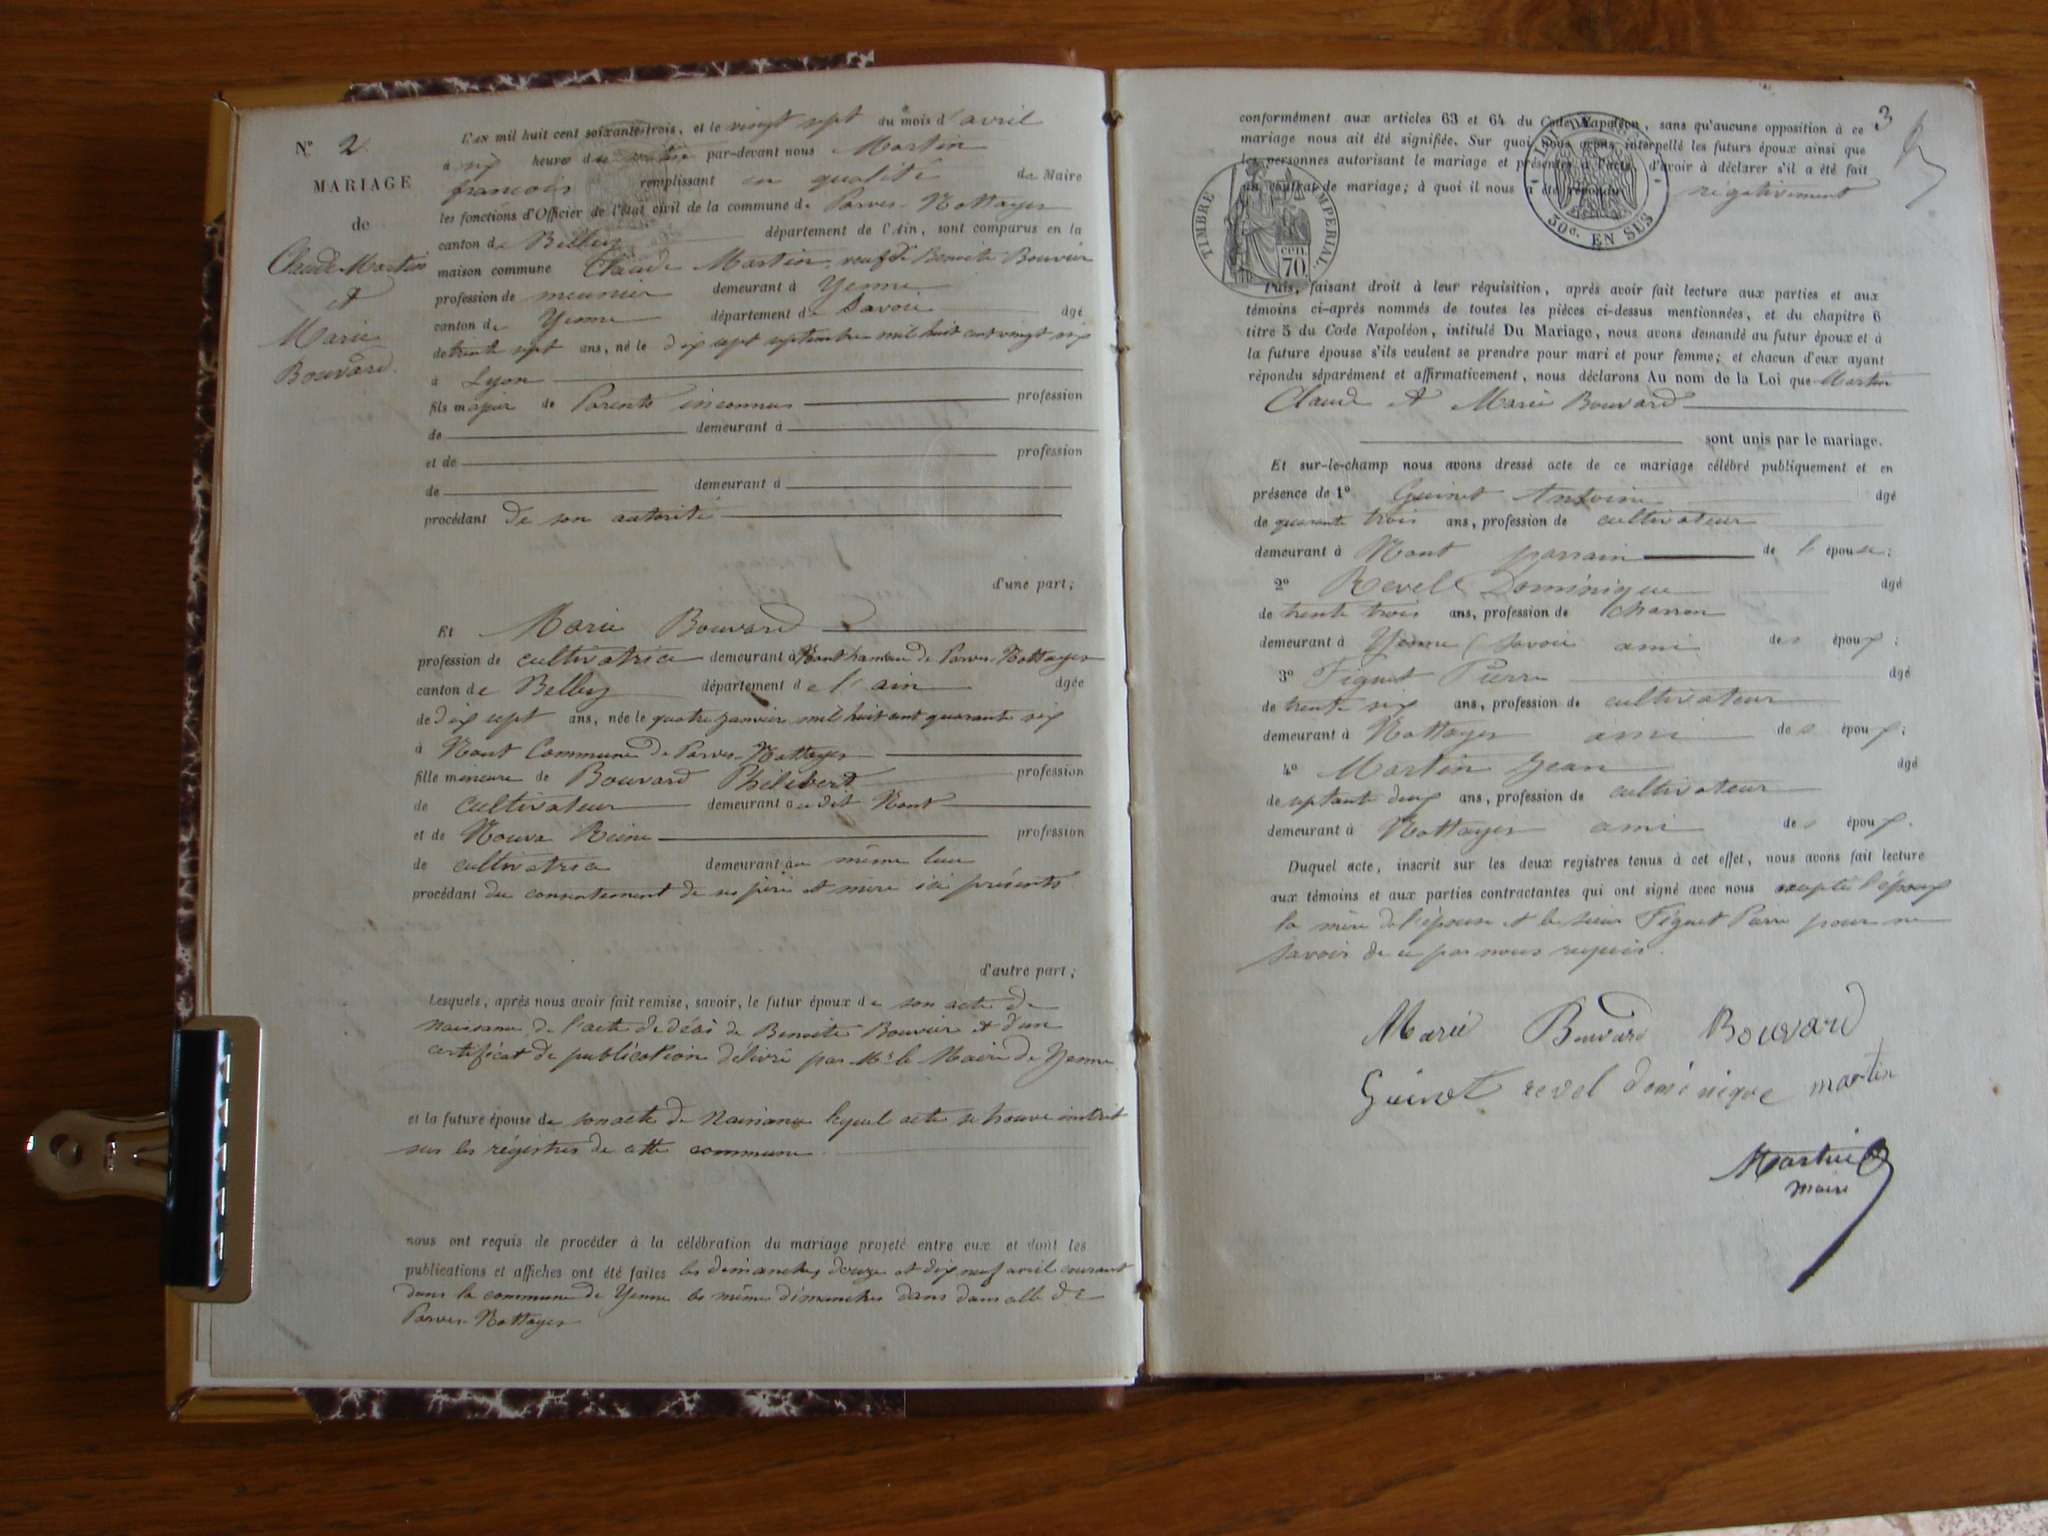 N° 2
MARIAGE
de
Claude Martin
et
Marie
Bouvard.
L'an mil huit cent soixante-trois, et le vingt sept du mois d'avril
à six heures du par-devant nous Martin
françois remplissant en qualité de Maire
les fonctions d'Officier de l'état civil de la commune de Parves-Nattages
canton de Belley département de l'Ain, sont comparus en la
maison commune Claude Martin, veuf de Benoite Bouvier
profession de meunier demeurant à Yenne
canton de Yenne département de Savoie âgé
de trente sept ans, né le dix sept septembre mil huit cent vingt six
à Lyon
fils majeur de Parents inconnus profession
de demeurant à
et de profession
de demeurant à
procédant de son autorité
d'une part;
Et Marie Bouvard
profession de cultivatrice demeurant à Nant hameau de Parves-Nattages
canton de Belley département de l'ain âgée
de dix sept ans, née le quatre janvier mil huit cent quarante six
à Nant Commune de Parves-Nattages
fille mineure de Bouvard Philibert profession
de cultivateur demeurant au dit Nant
et de Reine profession
de cultivatrice demeurant au même lieu
procédant du consentement de ses père et mère ici présents
d'autre part;
Lesquels, après nous avoir fait remise, savoir, le futur époux de son acte de
naissance, de l'acte de décès de Benoite Bouvier et d'un
certificat de publication délivré par Mr le Maire de Yenne
et la future épouse de son acte de naissance lequel acte se trouve inscrit
sur les régistres de cette commune
nous ont requis de procéder à la célébration du mariage projeté entre eux et dont les
publications et affiches ont été faites les dimanches douze et dix neuf avril courant
dans la commune de Yenne les même dimanches dans dans celle de
Parves-Nattages
3
conformément aux articles 63 et 64 du Code Napoléon, sans qu'aucune opposition à ce
mariage nous ait été signifiée. Sur quoi nous avons interpellé les futurs époux ainsi que
les personnes autorisant le mariage et présentes à l'acte, d'avoir à déclarer s'il a été fait
un contrat de mariage; à quoi il nous a été répondu négativement
TIMBRE IMPERIAL
cen
70
LOI DE
50c. EN SUS
Puis, faisant droit à leur réquisition, après avoir fait lecture aux parties et aux
témoins ci-après nommés de toutes les pièces ci-dessus mentionnées, et du chapitre 6
titre 5 du Code Napoléon, intitulé Du Mariage, nous avons demandé au futur époux et à
la future épouse s'ils veulent se prendre pour mari et pour femme; et chacun d'eux ayant
répondu séparément et affirmativement, nous déclarons Au nom de la Loi que Martin
Claude et Marie Bouvard
sont unis par le mariage.
Et sur-le-champ nous avons dressé acte de ce mariage célébré publiquement et en
présence de 1° Guinet Antoine âgé
de quarante trois ans, profession de cultivateur
demeurant à Nant parrain de l'épouse;
2° Revel Dominique âgé
de trente trois ans, profession de charron
demeurant à Yenne (Savoie ami des époux;
3° Figuet Pierre âgé
de trente six ans, profession de cultivateur
demeurant à Nattages ami des époux;
4° Martin Jean âgé
de septante deux ans, profession de cultivateur
demeurant à Nattages ami des époux.
Duquel acte, inscrit sur les deux registres tenus à cet effet, nous avons fait lecture
aux témoins et aux parties contractantes qui ont signé avec nous excepté l'époux
la mère de l'épouse et le sieur Figuet Pierre pour ne
savoir de ce par nous requis.
Marie Bouvard Bouvard
Guinet revel doménique martin
Martin
maire